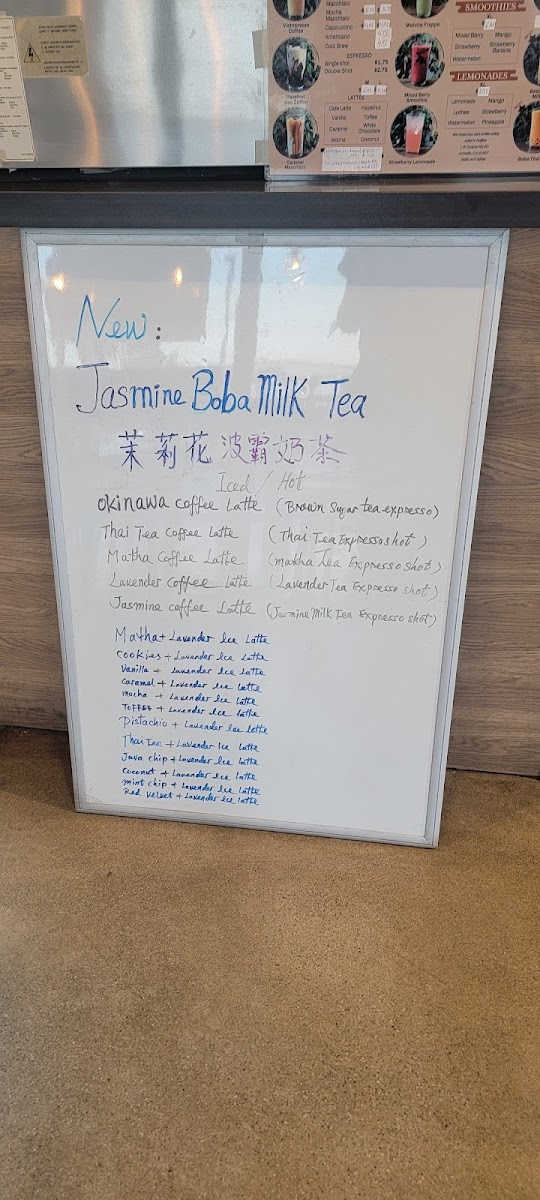 Macchiato
Mocha
Macchiato
Cappuccino
Americano
Cold Brew
ESPRESSO
Single shot $1.75
Double Shot $2.75
LATTES
Cafe Latte Hazelnut
Vanilla Toffee
Caramel White Chocolate
Mocha Coconut
Vietnamese Coffee
Hazelnut Iced Coffee
Caramel Macchiato
Matcha Frappe
Mixed Berry Smoothie
Strawberry Lemonade
SMOOTHIES
Mixed Berry Mango
Strawberry Strawberry Banana
Watermelon
LEMONADES
Lemonade Mango
Lychee Strawberry
Watermelon Pineapple
Boba Thai
New:
Jasmine Boba Milk Tea
茉莉花波霸奶茶
Iced / Hot
Okinawa coffee Latte (Brown Sugar tea expresso)
Thai Tea Coffee Latte (Thai Tea Expresso shot)
Matha Coffee Latte (matha Tea Expresso shot)
Lavender Coffee Latte (Lavender Tea Expresso shot)
Jasmine coffee Latte (Jasmine Milk Tea Expresso shot)
Matha + Lavender Ice Latte
Cookies + Lavender Ice Latte
Vanilla + Lavender Ice Latte
Caramel + Lavender Ice Latte
Mocha + Lavender Ice Latte
Toffee + Lavender Ice Latte
Pistachio + Lavender Ice Latte
Thai Tea + Lavender Ice Latte
Java chip + Lavender Ice Latte
Coconut + Lavender Ice Latte
mint chip + Lavender Ice Latte
Red Velvet + Lavender Ice Latte